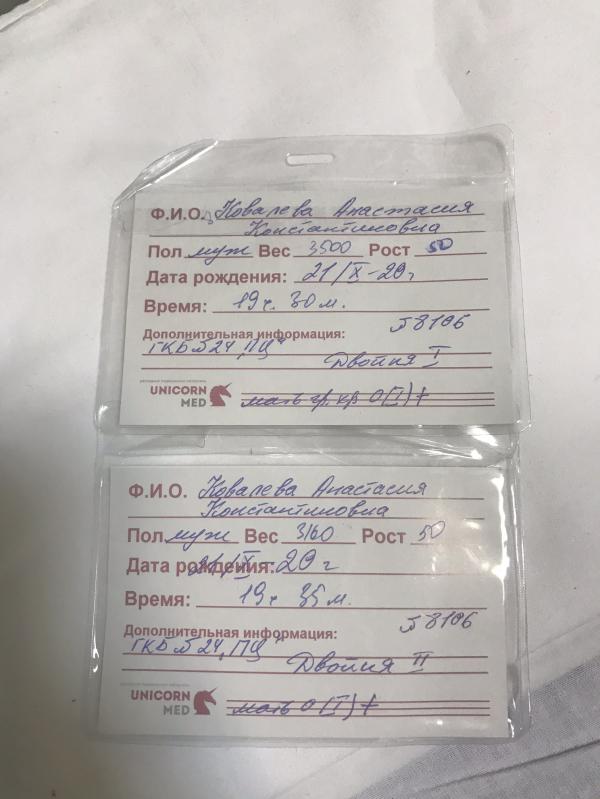 Ф.И.О. Ковалева Анастасия
Константиновна
Пол муж Вес 3500 Рост 50
Дата рождения: 21/X-20г
Время: 19ч. 30м.
Дополнительная информация: 8106
ГКБ №24, ПЦ"
Двойня I
UNICORN
MED
мать гр. кр O(I)+
Ф.И.О. Ковалева Анастасия
Константиновна
Пол муж Вес 3160 Рост 50
Дата рождения: 21/X-20г
Время: 19ч 35м.
Дополнительная информация: 8106
ГКБ №24, ПЦ"
Двойня II
UNICORN
MED
мать O(I)+